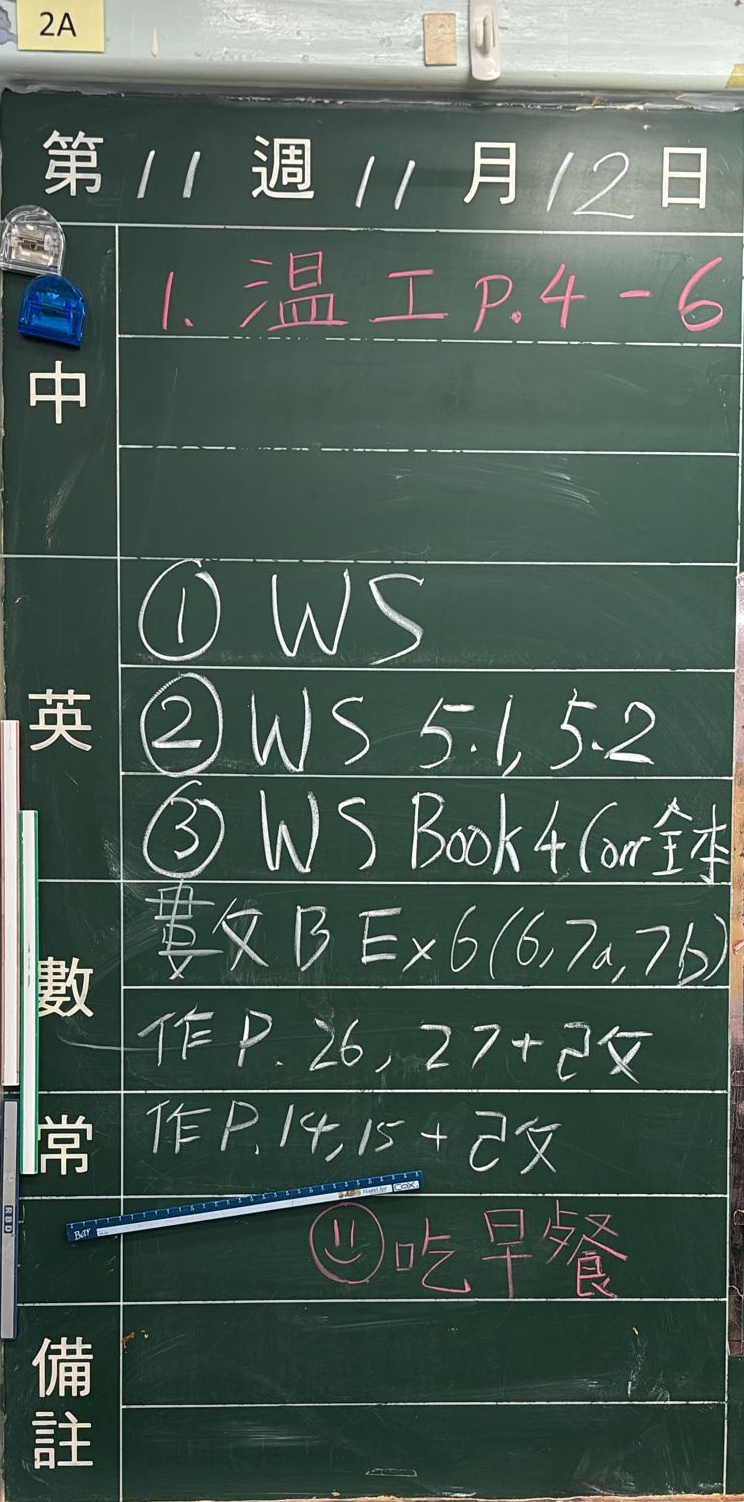 2A
第 11 週 11 月 12 日
中
1. 温工 P.4-6
英
① WS
② WS 5.1, 5.2
③ WS Book4 Corr 全本
數
數 B Ex6(6,7a,7b)
作 P. 26, 27+改
常
作 P.14,15 + 改
Bar
COX
RBD
吃早餐
備註